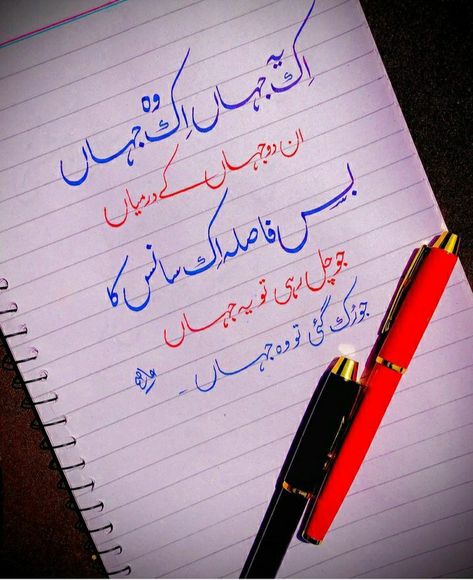 اِک یہ جہاں اِک وہ جہاں
ان دو جہاں کے درمیاں
بس فاصلہ اِک سانس کا
جو چل رہی تو یہ جہاں
جو رُک گئی تو وہ جہاں ۔